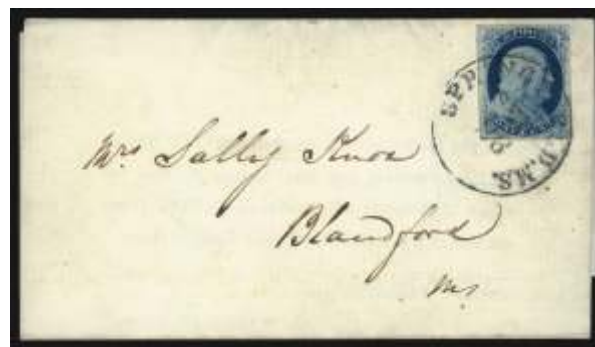 Mrs Sally Knox
Blandford
Ms